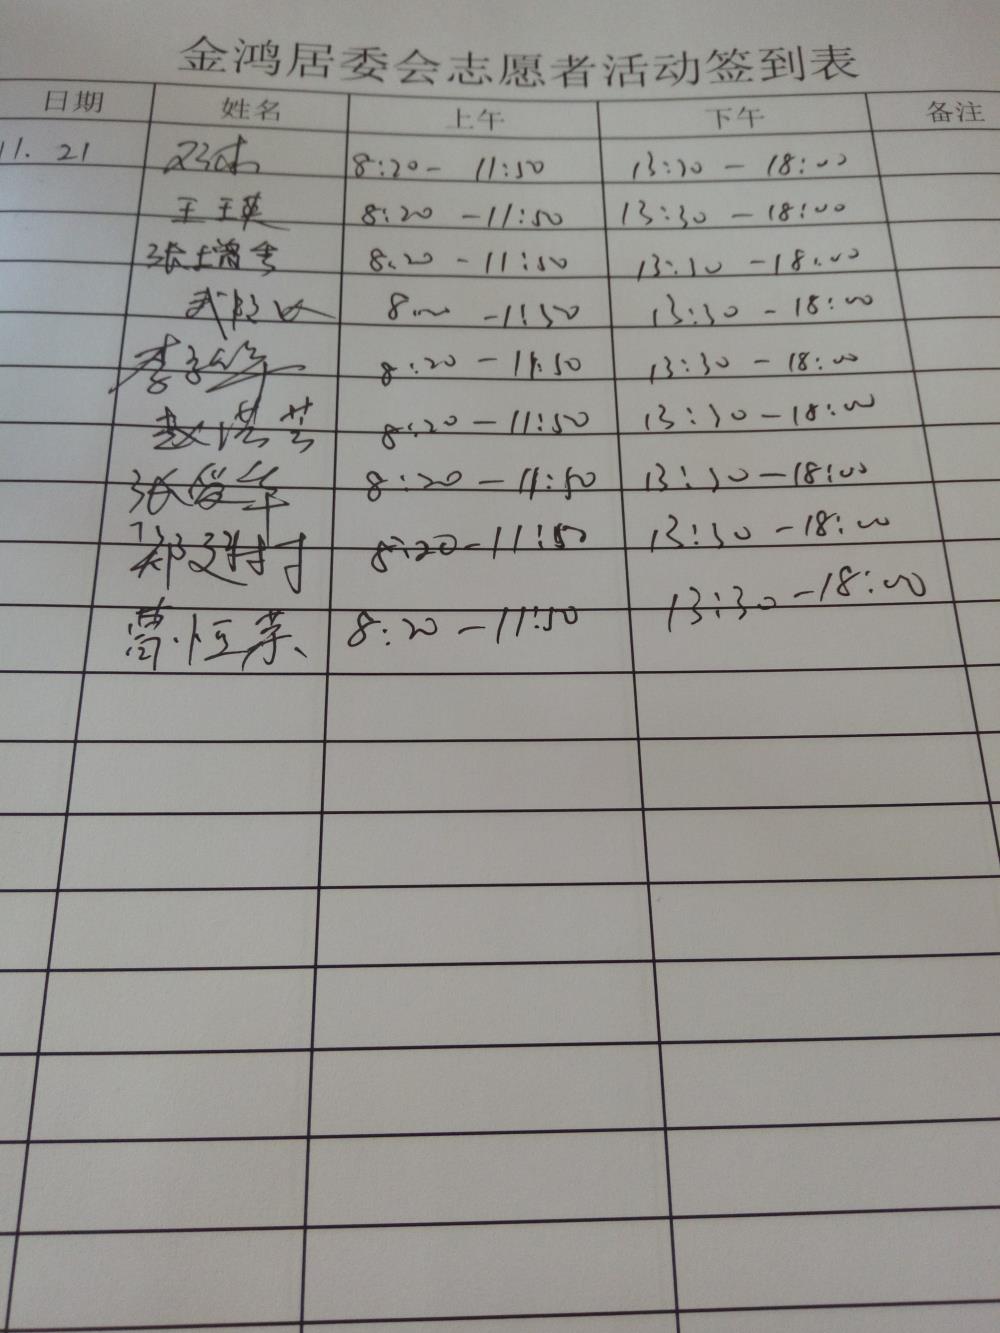 金鸿居委会志愿者活动签到表
日期 姓名 上午 下午 备注
11.21 8:20- 11:50 13:30 - 18:00
王玉英 8:20 -11:50 13:30 - 18:00
8:20 - 11:50 13:30 - 18:00
8:00 -11:50 13:30 - 18:00
李 8:20 - 11:50 13:30 - 18:00
赵 8:20 - 11:50 13:30 - 18:00
张 8:20 - 11:50 13:30 - 18:00
郑 8:20 - 11:50 13:30 - 18:00
曹恒 8:20 - 11:50 13:30 - 18:00